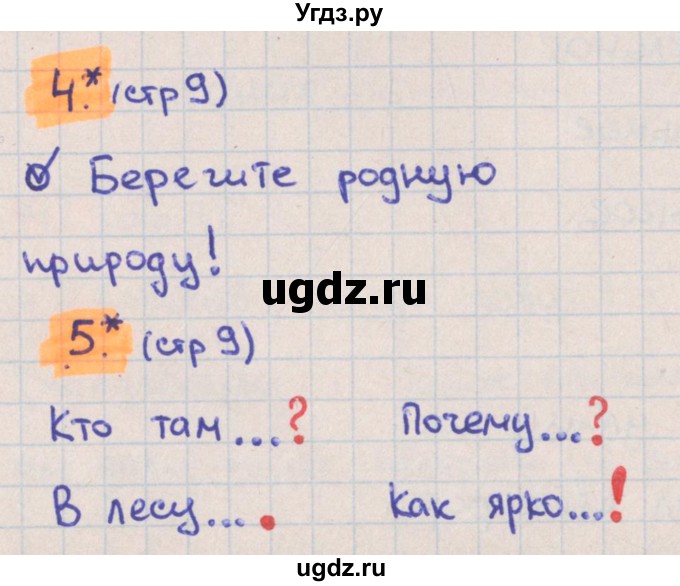 Угдз.ру
4.* (стр 9)
Берегите родную
природу!
ugdz.ru
5.* (стр 9)
Кто там...? Почему...?
В лесу.... Как ярко...!
ugdz.ru